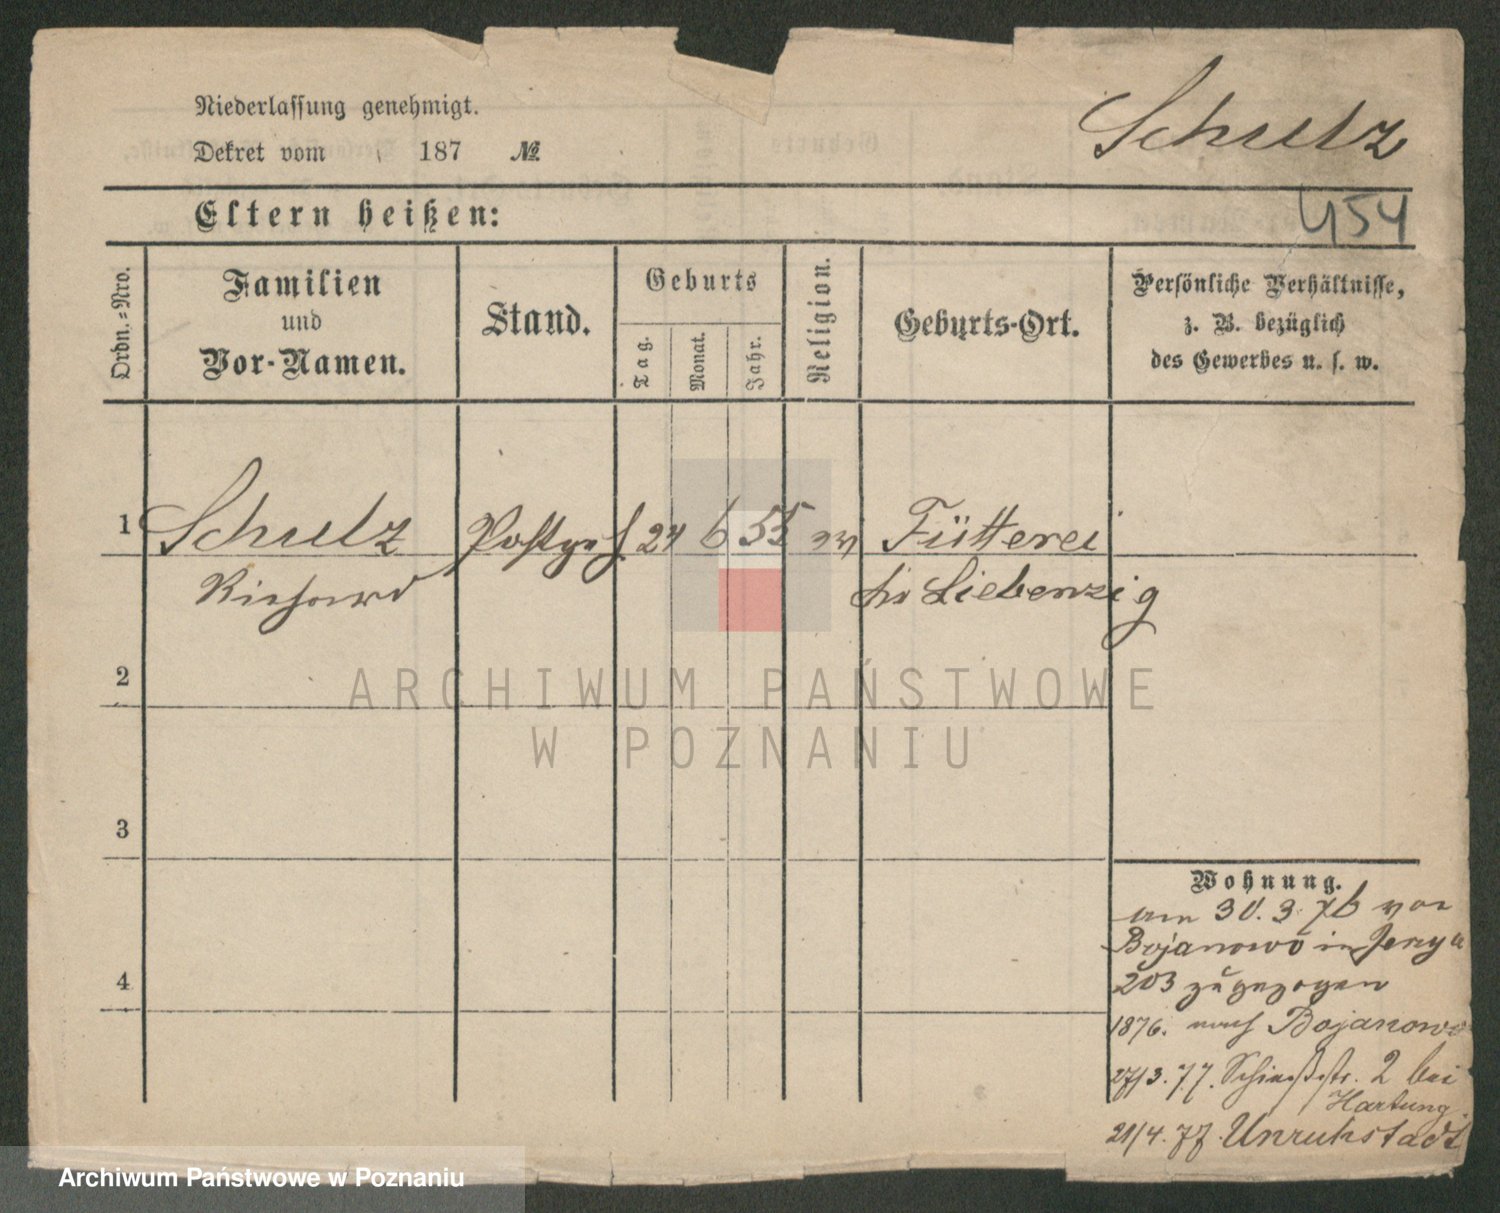 Schulz
Niederlassung genehmigt.
Dekret vom 187 №
454
Eltern heißen:
Ordn.=Nro.
Familien
und
Vor-Namen.
Stand.
Geburts
Tag.
Monat.
Jahr.
Religion.
Geburts-Ort.
Persönliche Verhältnisse,
z. B. bezüglich
des Gewerbes u. s. w.
1 Schulz Postgeh 24 6 55 ev Fütterei
Richard bei Liebenzig
2
3
4
Wohnung.
am 30.3.76 von
Bojanowo in
203 zugezogen
1876. nach Bojanowo
27/3.77. Schießstr. 2 bei
Hartung
21/4.77. Unruhstadt
ARCHIWUM PAŃSTWOWE
W POZNANIU
Archiwum Państwowe w Poznaniu